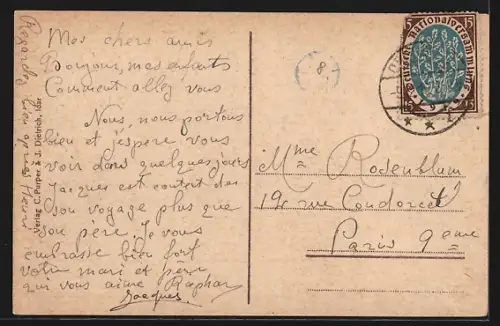 Mes chers amis
Bonjour, mes enfants
Comment allez vous
Nous, nous portons
bien et j'espère vous
voir dans quelques jours
Jacques est content de
son voyage plus que
son père. Je vous
embrasse bien fort
votre mari et père
qui vous aime Raphael
Jacques
Regardez
Verlag C. Purper & J. Dietrich, Idar
8.
15 15
Deutsche Nationalversammlung
15 15
Mme Rosenblum
rue Condorcet
Paris 9eme